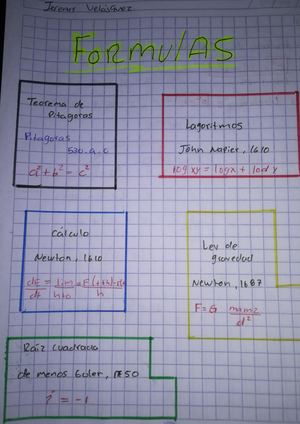 Jerenis Velásquez
FORMULAS
Teorema de
Pitagoras
Pitagoras
530.a.c
a²+b²=c²
Lagoritmos
John Napier, 1610
log xy = log x + lod y
Cálculo
Newton, 1610
dF = lim = F(t+h)-
dt h→o h
Ley de
gravedad
Newton, 1687
F=G m₁m₂
d²
Raiz cuadrada
de menos Euler, 1750
i² = -1